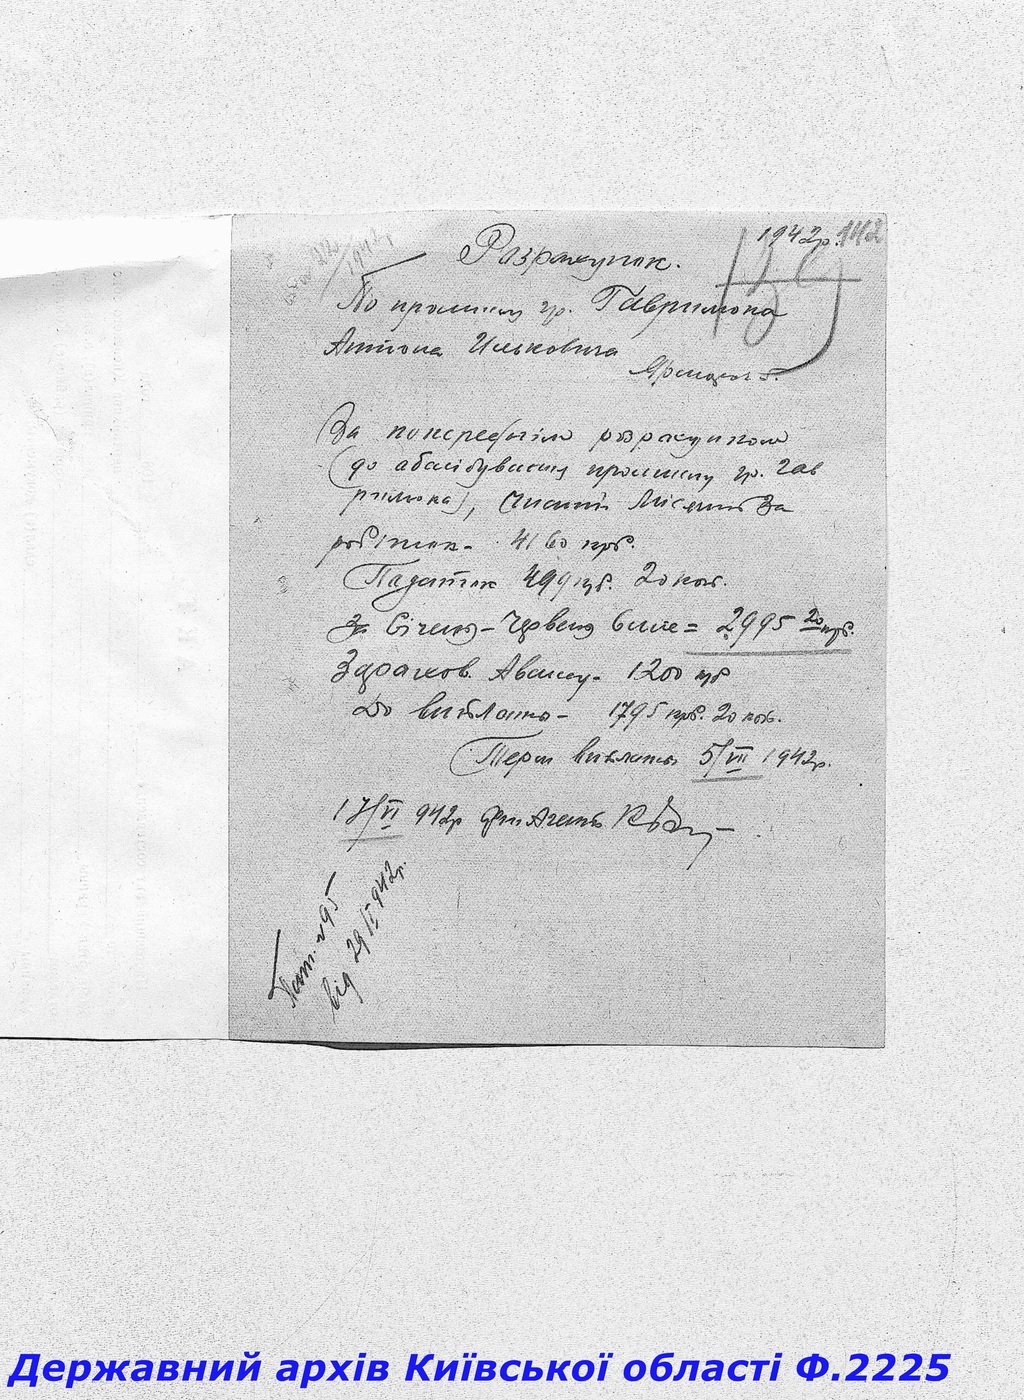 1942р. 142
Разрахунок.
По промислу гр. Гавримока
Антона Ильковича
За попереднім розрахунком
(до обслідування промислу гр. Гав
римока), чистий місячний За
робіток - 4160 крб.
Податок 499 крб. 20 коп.
За Січень - Червень біжс = 2995 20 крб.
Здрахов. Авансу - 1200 крб
До виплати - 1795 крб. 20 коп.
Терм виплати 5/VII 1942р.
17/VI 942р фін Агент
№ 95
від 29/ 942р.
Державний архів Київської області Ф.2225